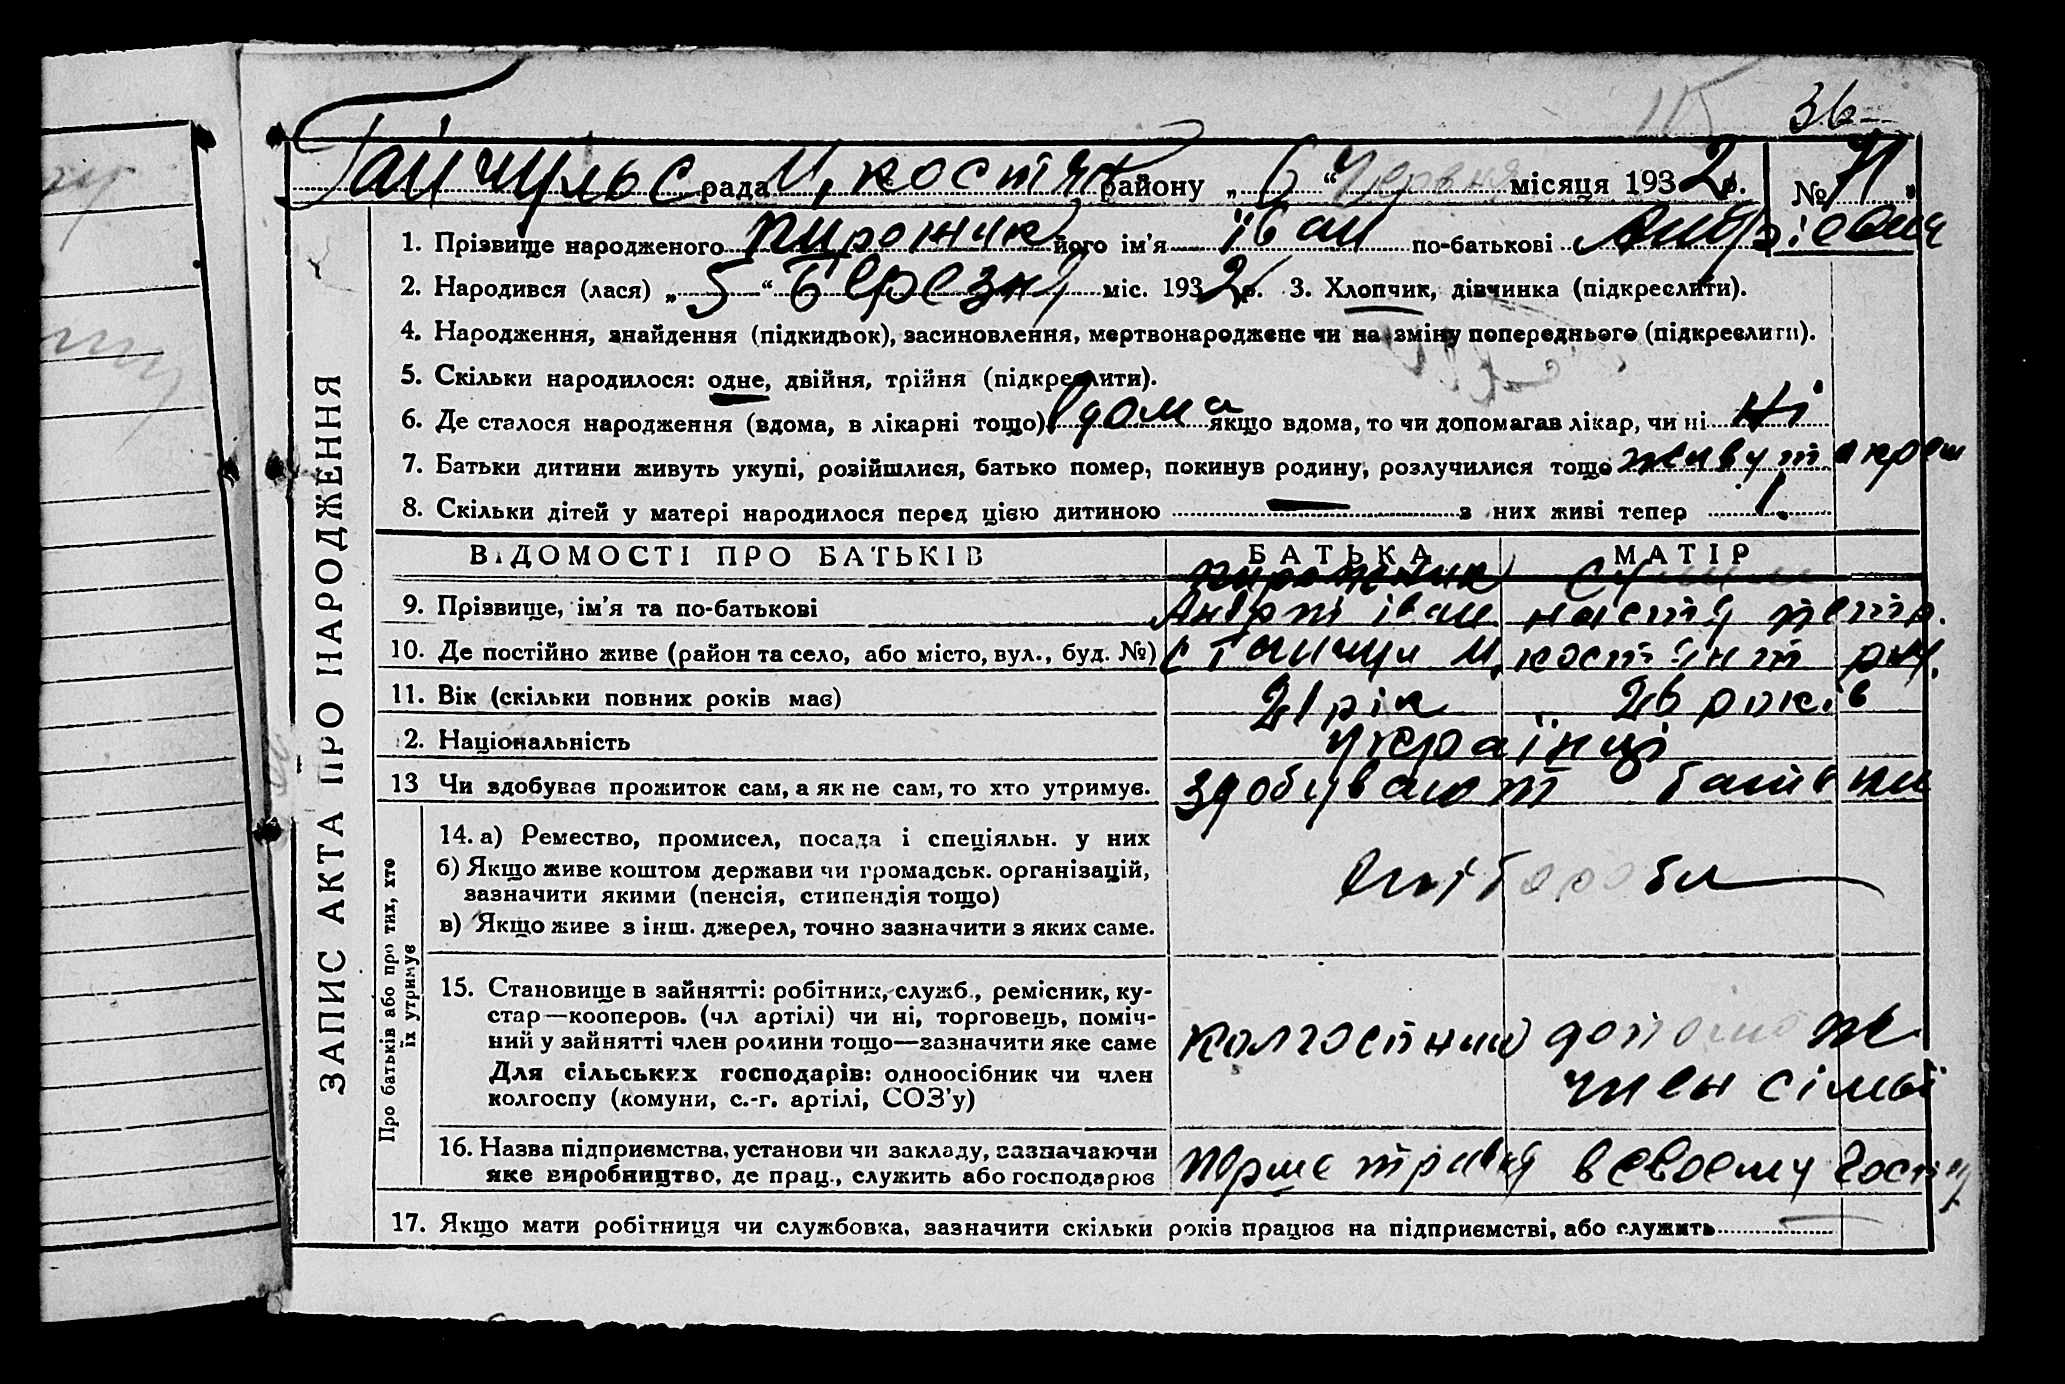 115
36
Гайчульс рада М, костян району „6“ Червня місяця 1932 р. № 71
1. Прізвище народженого Пирожик його ім'я Іван по-батькові Андрієвич
2. Народився (лася) „5“ Березня міс. 1932 р. 3. Хлопчик, дівчинка (підкреслити).
4. Народження, знайдення (підкидьок), засиновлення, мертвонароджене чи на зміну попереднього (підкреслити).
5. Скільки народилося: одне, двійня, трійня (підкреслити).
6. Де сталося народження (вдома, в лікарні тощо) вдома якщо вдома, то чи допомагав лікар, чи ні ні
7. Батьки дитини живуть укупі, розійшлися, батько помер, покинув родину, розлучилися тощо живут
8. Скільки дітей у матері народилося перед цією дитиною — з них живі тепер 1.
ЗАПИС АКТА ПРО НАРОДЖЕННЯ
ВІДОМОСТІ ПРО БАТЬКІВ БАТЬКА МАТІР
Пирожник
9. Прізвище, ім'я та по-батькові Андрій іван настя петр.
10. Де постійно живе (район та село, або місто, вул., буд. №) с Гайчул М, костянт рай.
11. Вік (скільки повних років має) 21 рік 26 років
12. Національність Українці
13 Чи здобуває прожиток сам, а як не сам, то хто утримує. здобувают батьки
Про батьків або про тих, хто їх утримує
14. а) Ремество, промисел, посада і спеціяльн. у них
б) Якщо живе коштом держави чи громадськ. організацій,
зазначити якими (пенсія, стипендія тощо) хліборобы
в) Якщо живе з інш. джерел, точно зазначити з яких саме.
15. Становище в зайнятті: робітник, служб., ремісник, ку-
стар—кооперов. (чл артілі) чи ні, торговець, поміч-
ний у зайнятті член родини тощо—зазначити яке саме колгоспник
Для сільських господарів: одноосібник чи член член сімьї
колгоспу (комуни, с.-г. артілі, СОЗ'у)
16. Назва підприємства, установи чи закладу, зазначаючи
яке виробництво, де прац., служить або господарює перше травня в своему госп
17. Якщо мати робітниця чи службовка, зазначити скільки років працює на підприємстві, або служить —